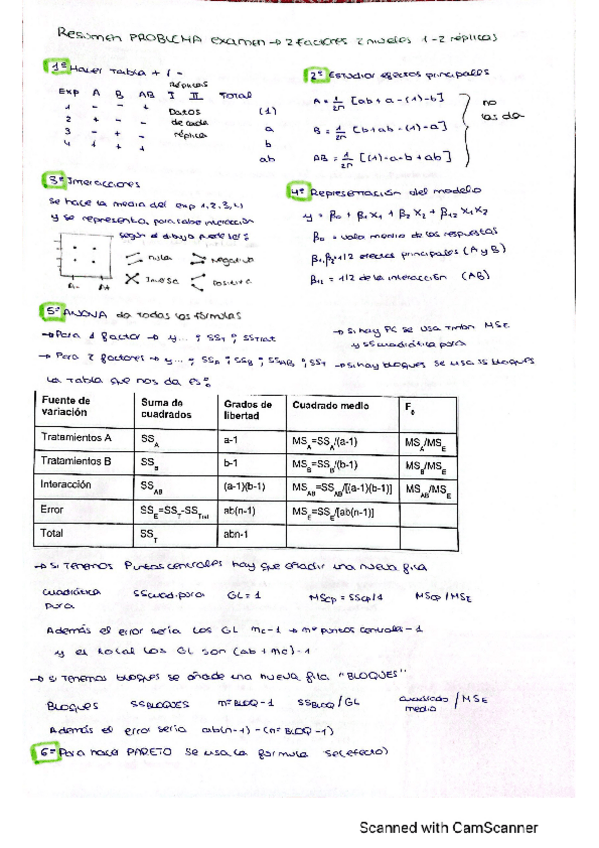 Resumen PROBLEMA examen → 2 factores 2 niveles 1-2 réplicas
1º Hacer Tabla + / -
Exp A B AB Réplicas I II Total
1 - - + Datos (1)
2 + - - de cada a
3 - + - réplica b
4 + + + ab
2º Estudiar efectos principales
A = 1/2n [ab + a - (1) - b]
B = 1/2n [b + ab - (1) - a]
AB = 1/2n [(1) - a - b + ab]
no las da
3º Interacciones
se hace la media del exp 1, 2, 3, 4
y se representa, para saber interacción
según el dibujo puede ser:
nula Negativa
Inversa Positiva
A- A+
4º Representación del modelo
y = β0 + β1 X1 + β2 X2 + β12 X1 X2
β0 = valor medio de las respuestas
β1, β2 = 1/2 efectos principales (A y B)
β12 = 1/2 de la interacción (AB)
5º ANOVA da todas las fórmulas
→ Para 1 factor → y... ; SST ; SSTrat
→ Para 2 factores → y... ; SSA ; SSB ; SSAB ; SST
→ Si hay PC se usa MSE
y SScuadrática pura
→ Si hay bloques se usa SS bloques
La tabla que nos da es:
Fuente de variación Suma de cuadrados Grados de libertad Cuadrado medio F0
Tratamientos A SSA a-1 MSA=SSA/(a-1) MSA/MSE
Tratamientos B SSB b-1 MSB=SSB/(b-1) MSB/MSE
Interacción SSAB (a-1)(b-1) MSAB=SSAB/[(a-1)(b-1)] MSAB/MSE
Error SSE=SST-SSTrat ab(n-1) MSE=SSE/[ab(n-1)]
Total SST abn-1
→ Si tenemos Puntos centrales hay que añadir una nueva fila
cuadrática pura SScuad.pura GL = 1 MSCP = SSCP/1 MSCP / MSE
Además el error sería los GL nc-1 → nº puntos centrales - 1
y el total los GL son (ab + nc) - 1
→ Si tenemos bloques se añade una nueva fila "BLOQUES"
Bloques SSBLOQUES nº BLOQ - 1 SSBLOQ / GL cuadrado medio / MSE
Además el error sería ab(n-1) - (nº BLOQ - 1)
6º Para hacer PARETO se usa la fórmula se(efecto)
Scanned with CamScanner